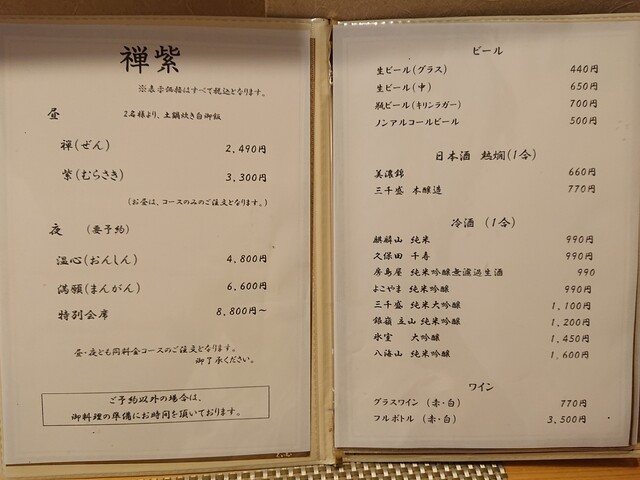 禅紫
※表示価格はすべて税込となります。
昼 2名様より、土鍋炊き白御飯
禅(ぜん) 2,490円
紫(むらさき) 3,300円
(お昼は、コースのみのご注文となります。)
夜 (要予約)
温心(おんしん) 4,800円
満願(まんがん) 6,600円
特別会席 8,800円~
昼・夜とも同料金コースのご注文となります。
御了承ください。
ご予約以外の場合は、
御料理の準備にお時間を頂いております。
ビール
生ビール(グラス) 440円
生ビール(中) 650円
瓶ビール(キリンラガー) 700円
ノンアルコールビール 500円
日本酒 熱燗(1合)
美濃錦 660円
三千盛 本醸造 770円
冷酒 (1合)
麒麟山 純米 990円
久保田 千寿 990円
房島屋 純米吟醸無濾過生酒 990
よこやま 純米吟醸 990円
三千盛 純米大吟醸 1,100円
銀嶺 立山 純米吟醸 1,200円
氷室 大吟醸 1,450円
八海山 純米吟醸 1,600円
ワイン
グラスワイン (赤・白) 770円
フルボトル (赤・白) 3,500円